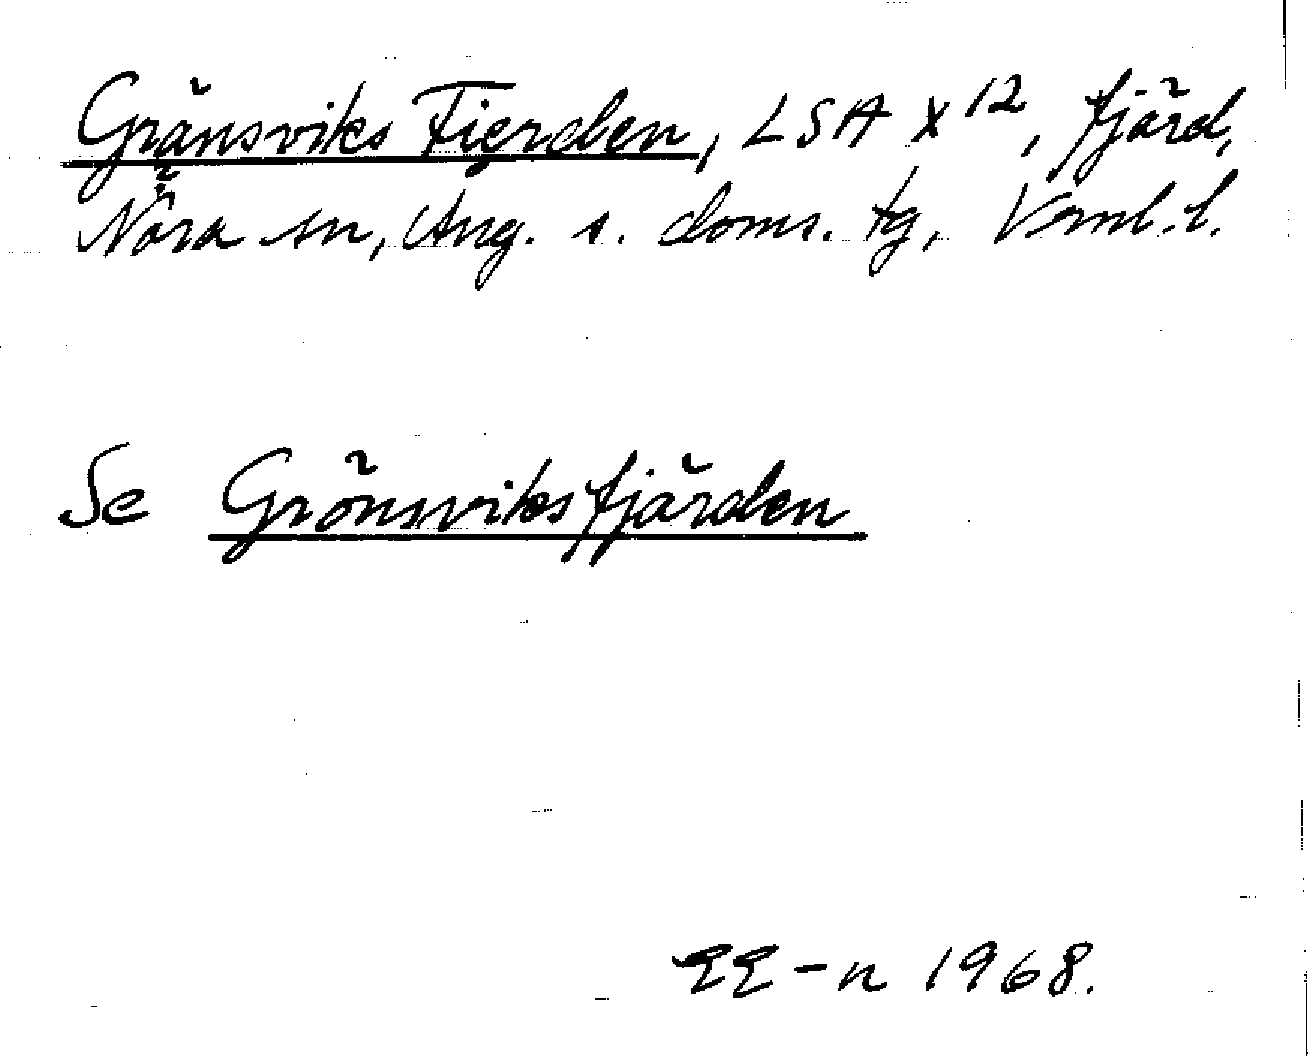 Gränsviks Fierden, LSA X¹², fjärd,
Nöra sn, Ång. s. doms. tg, Vrnl. l.
Se Grönsviksfjärden
EE-n 1968.